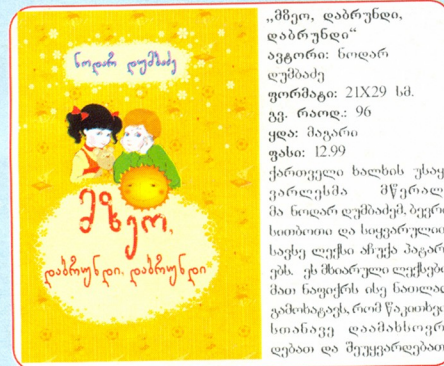 ნოდარ დუმბაძე
მზეო,
დაბრუნდი, დაბრუნდი
„მზეო, დაბრუნდი,
დაბრუნდი“
ავტორი: ნოდარ
დუმბაძე
ფორმატი: 21X29 სმ.
გვ. რაოდ.: 96
ყდა: მაგარი
ფასი: 12.99
ქართველი ხალხის უსაყ
ვარლესმა მწერალ
მა ნოდარ დუმბაძემ, ბევრი
სითბოთი და სიყვარულით
სავსე ლექსი აჩუქა პატარ
ებს. ეს მხიარული ლექსები
მათ ნაფიქრს ისე ნათლად
გამოხატავს, რომ წაკითხვი
სთანავე დაამახსოვრ
დებათ და შეუყვარდებათ